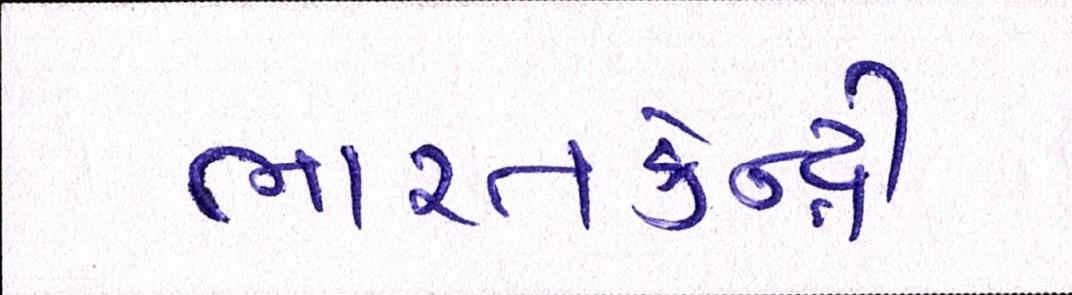 ભારતકેન્દ્રી